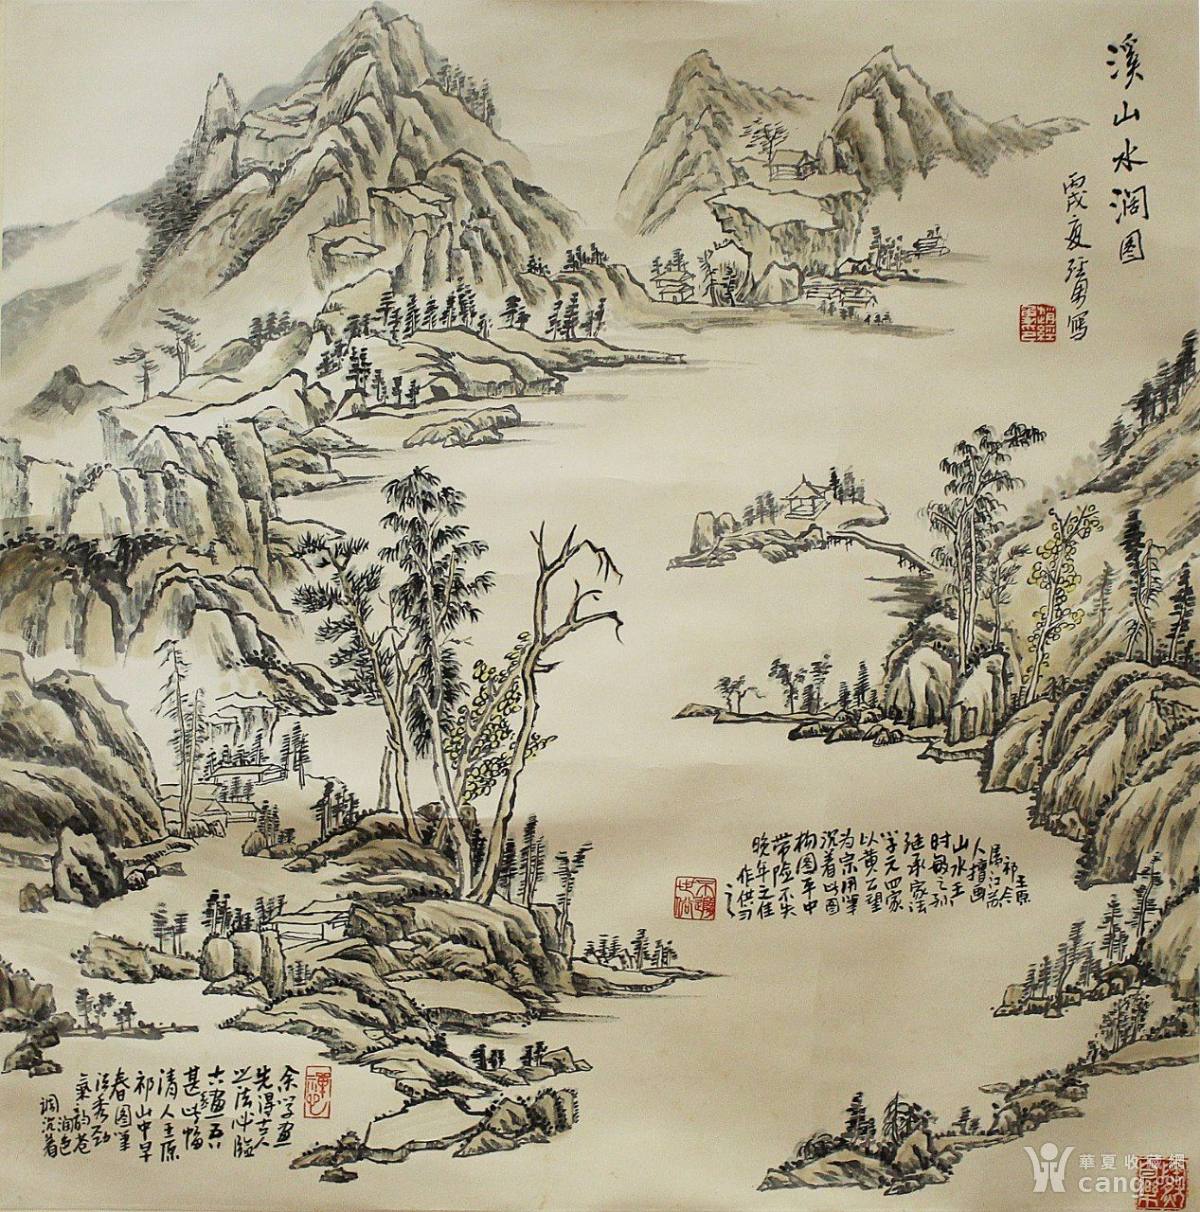 溪山水润图
丙戌夏张勇写
王原
祁今
属江苏
人擅画
山水王
时敏之孙
继承家法
学元四家
以黄公望
为宗用笔
沉着此图
构图平中
带险不失
晚年之佳
作供习之
余学画
先得古人
之法必临
六遍
甚此幅
清人王原
祁山中早
春图笔
法秀劲
气韵苍
润色
调沉着
華夏收藏網
cang.com